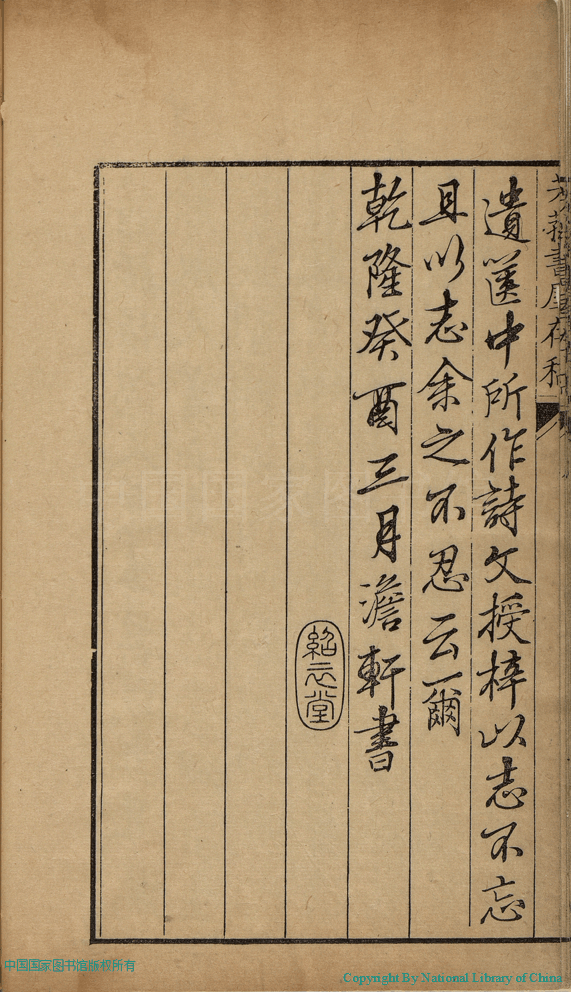 書屋存稿
遺篋中所作詩文授梓以志不忘
且以志余之不忍云爾
乾隆癸酉三月澹軒書
紹衣堂
中国国家图书馆版权所有
Copyright By National Library of China